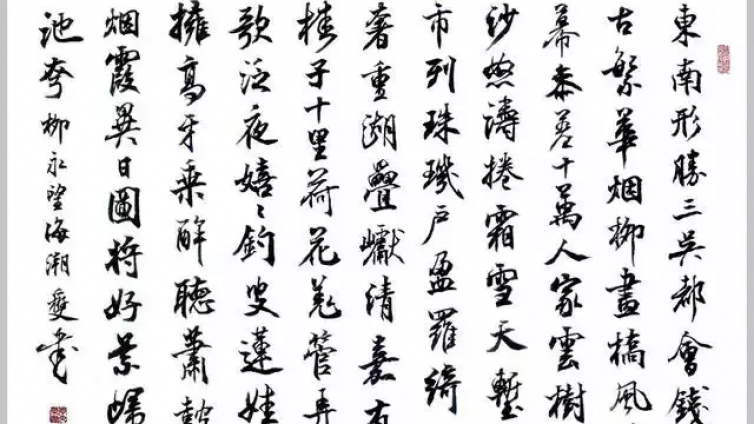 東南形勝三吳都會錢
古繁華烟柳畫橋風
幕參差十萬人家雲樹
沙怒濤捲霜雪天塹
市列珠璣戶盈羅綺
奢重湖疊巘清嘉有
桂子十里荷花羌管弄
歌泛夜嬉〻釣叟蓮娃
擁高牙乘醉聽蕭鼓
烟霞異日圖將好景歸
池夸 柳永望海潮 書